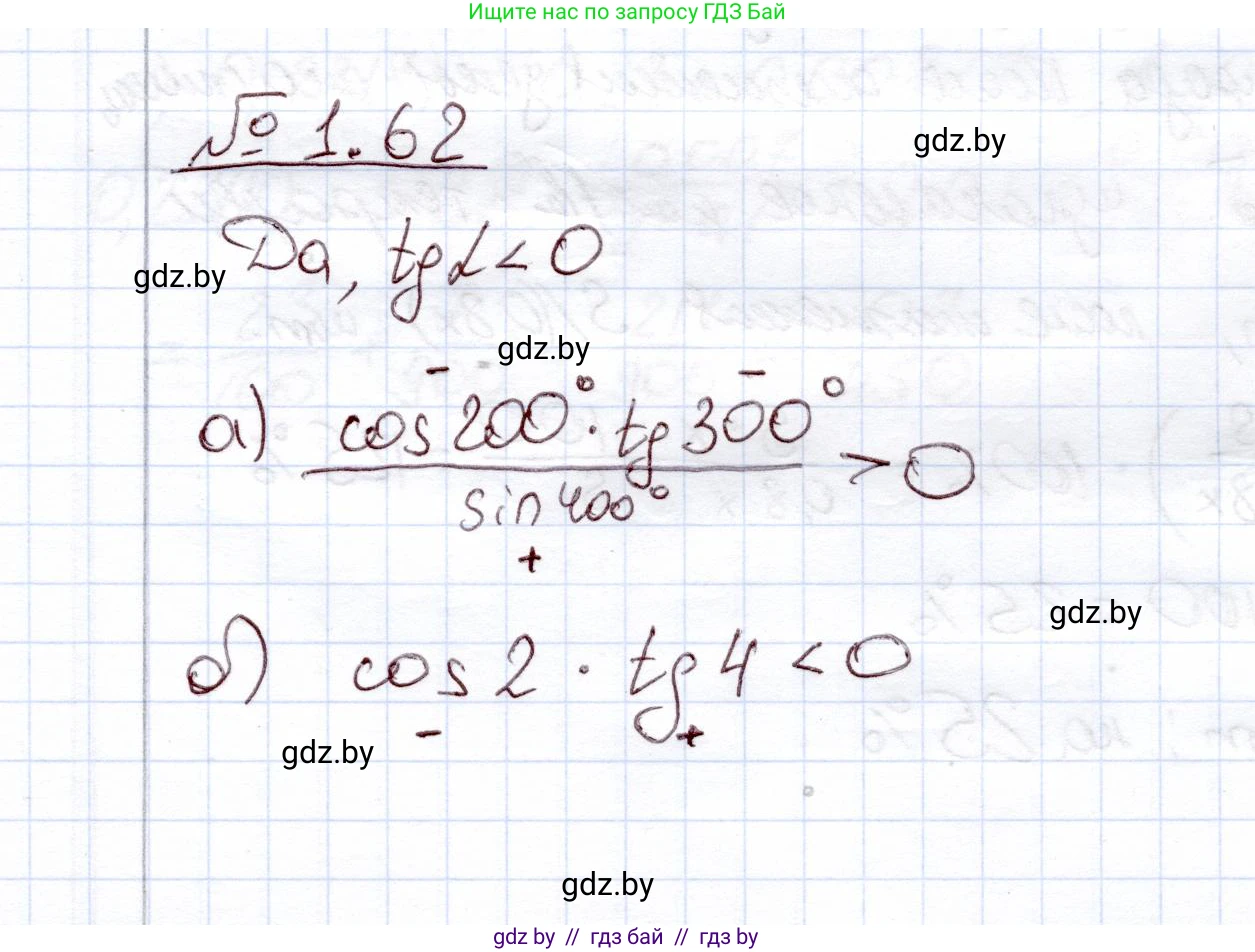 Ищите нас по запросу ГДЗ Бай
№ 1.62
gdz.by
Да, tg α < 0
gdz.by
gdz.by
- -
а) cos 200° · tg 300° > 0
sin 400°
+
gdz.by
б) cos 2 · tg 4 < 0
- +
gdz.by
gdz.by
gdz by // гдз бай // гдз by